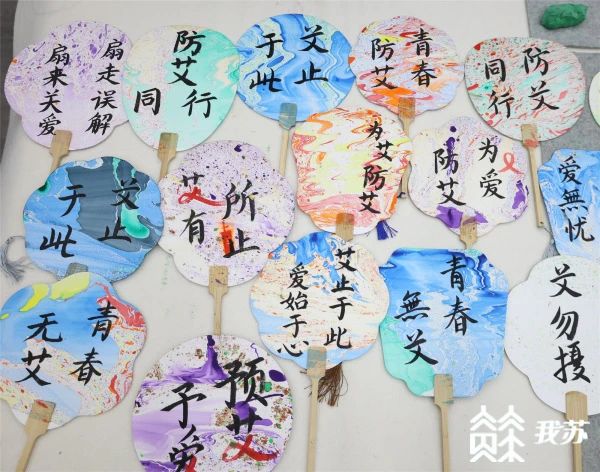 扇走误解
扇来关爱
防艾
同行
艾止
于此
青春
防艾
防艾
同行
艾止
于此
艾有
所止
为艾防艾
为爱
防艾
爱無忧
青春
无艾
预艾
予爱
艾止于此
爱始于心
青春
無艾
艾勿擾
我苏